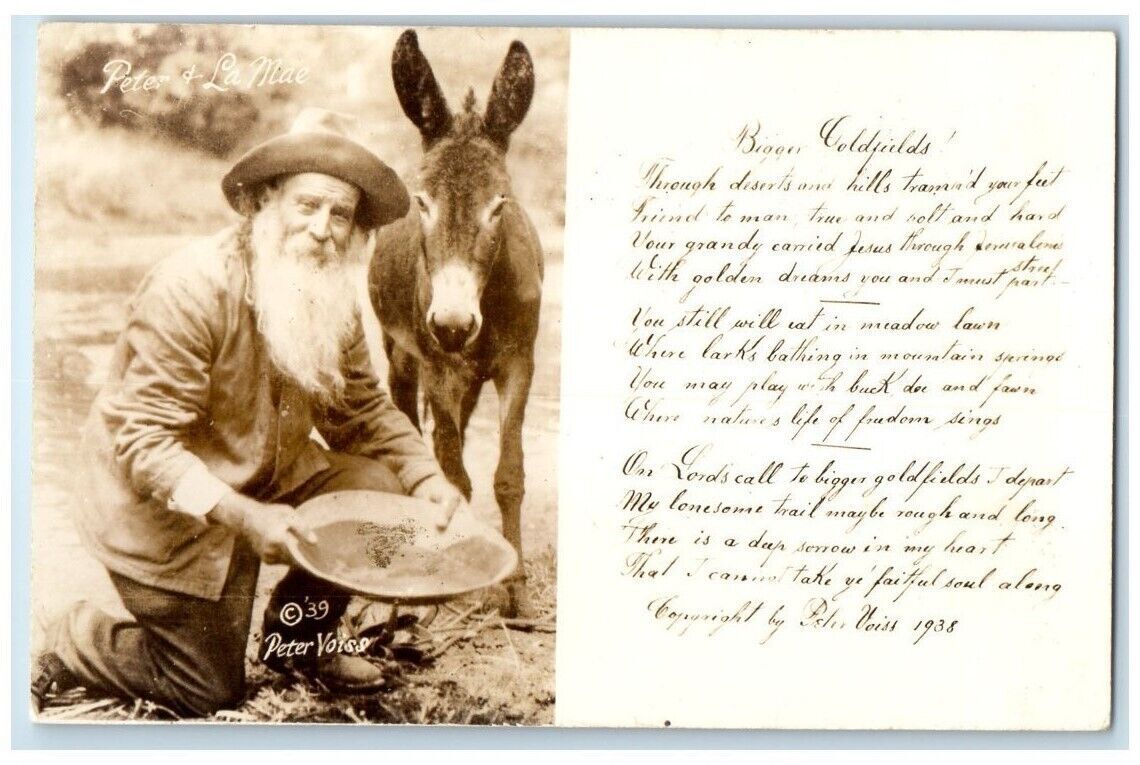 Peter & La Mae
© '39
Peter Voiss
Bigger Goldfields!
Through deserts and hills tramp'd your feet
Friend to man, true and solt and hard
Your grandy carried Jesus through Jerusalem's street
With golden dreams you and I must part.
You still will eat in meadow lawn
Where larks bathing in mountain springs
You may play with buck doe and fawn
Where natures life of freedom sings
On Lord's call to bigger goldfields I depart
My lonesome trail maybe rough and long
There is a deep sorrow in my heart
That I cannot take ye' faithful soul along
Copyright by Peter Voiss 1938